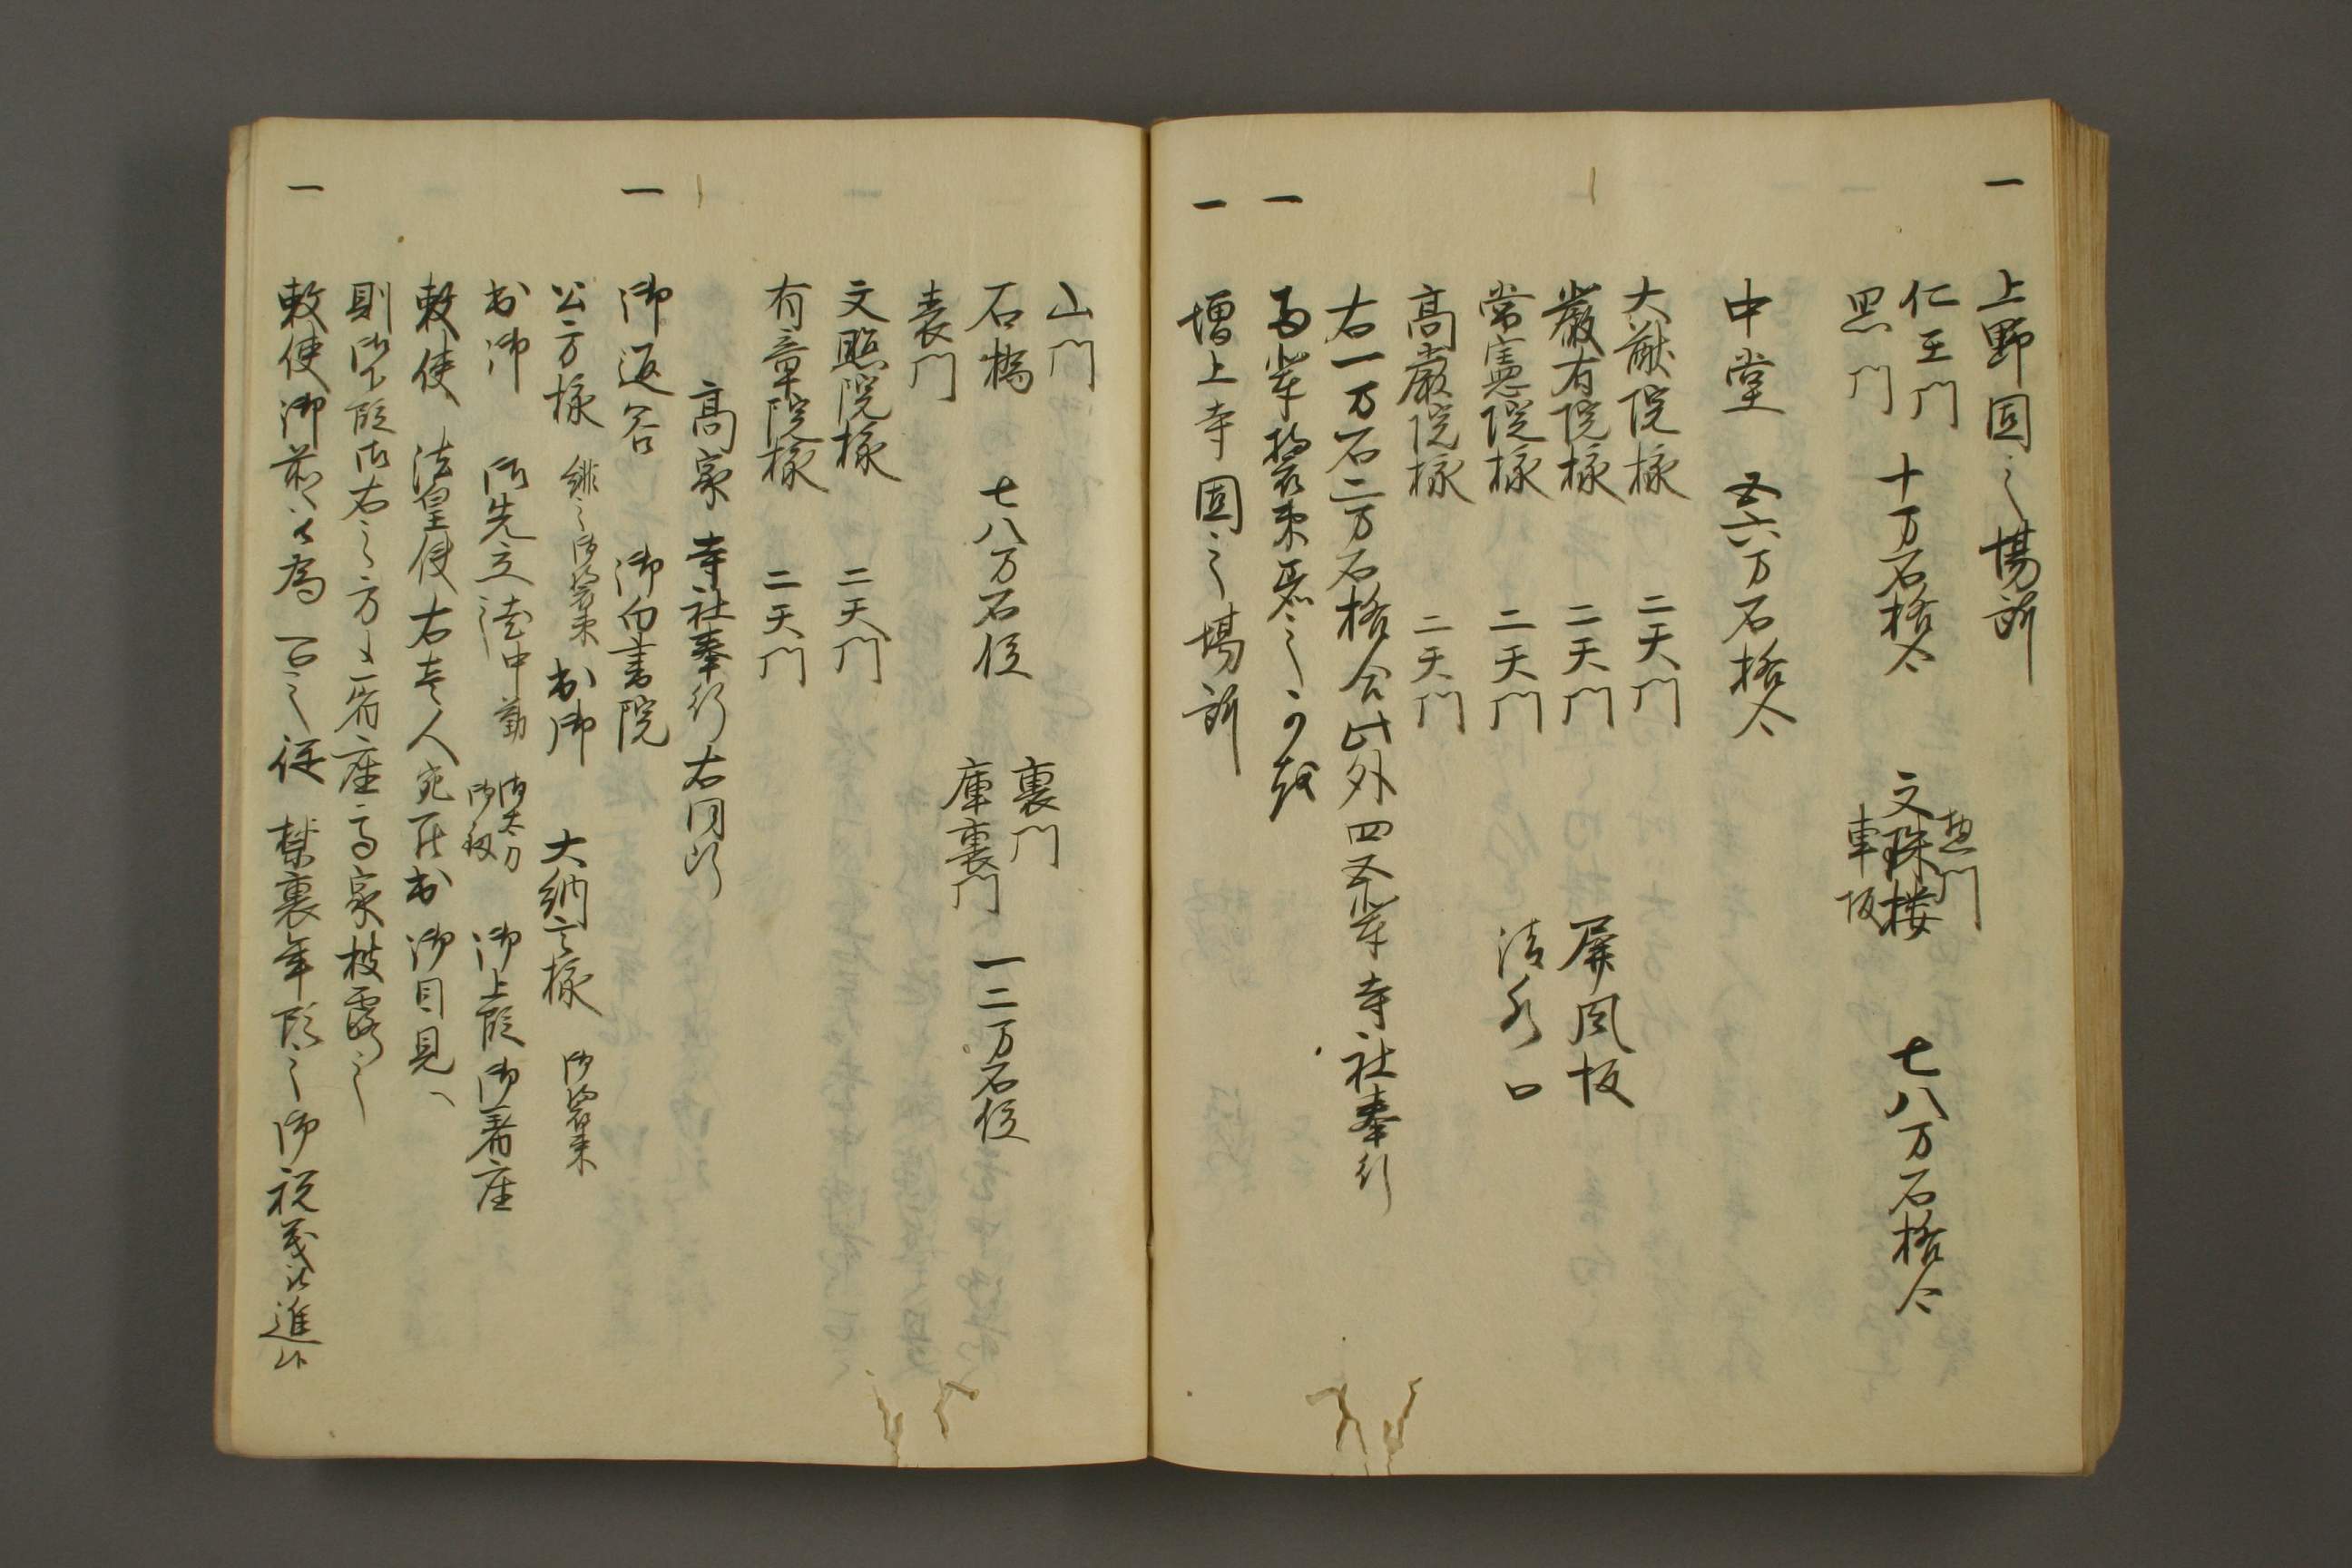 一 上野固之場所
仁王門
黒門 十万石格令
惣門
文珠楼
車坂 七八万石格令
中堂 五六万石格令
大猷院様 二天門
厳有院様 二天門 屏風坂
常憲院様 二天門 清水口
高嚴院様 二天門
右一万石二万石格合此外四五輩寺社奉行
一 両輩装束
一 増上寺固之場所
山門 裏門
石橋 七八万石位 庫裏門 一二万石位
表門
文照院様 二天門
有章院様 二天門
高家寺社奉行右同断
一 御返答 御白書院
公方様 緋之御装束 出御 大納言様 御装束
出御 御先立 中勤 御太刀 御劔 御上段御着座
勅使 法皇使右壱人宛罷出御目見
則御下段御右之方に着座高家披露之
一 勅使御前江為召之従 禁裏年頭之御祝儀被進